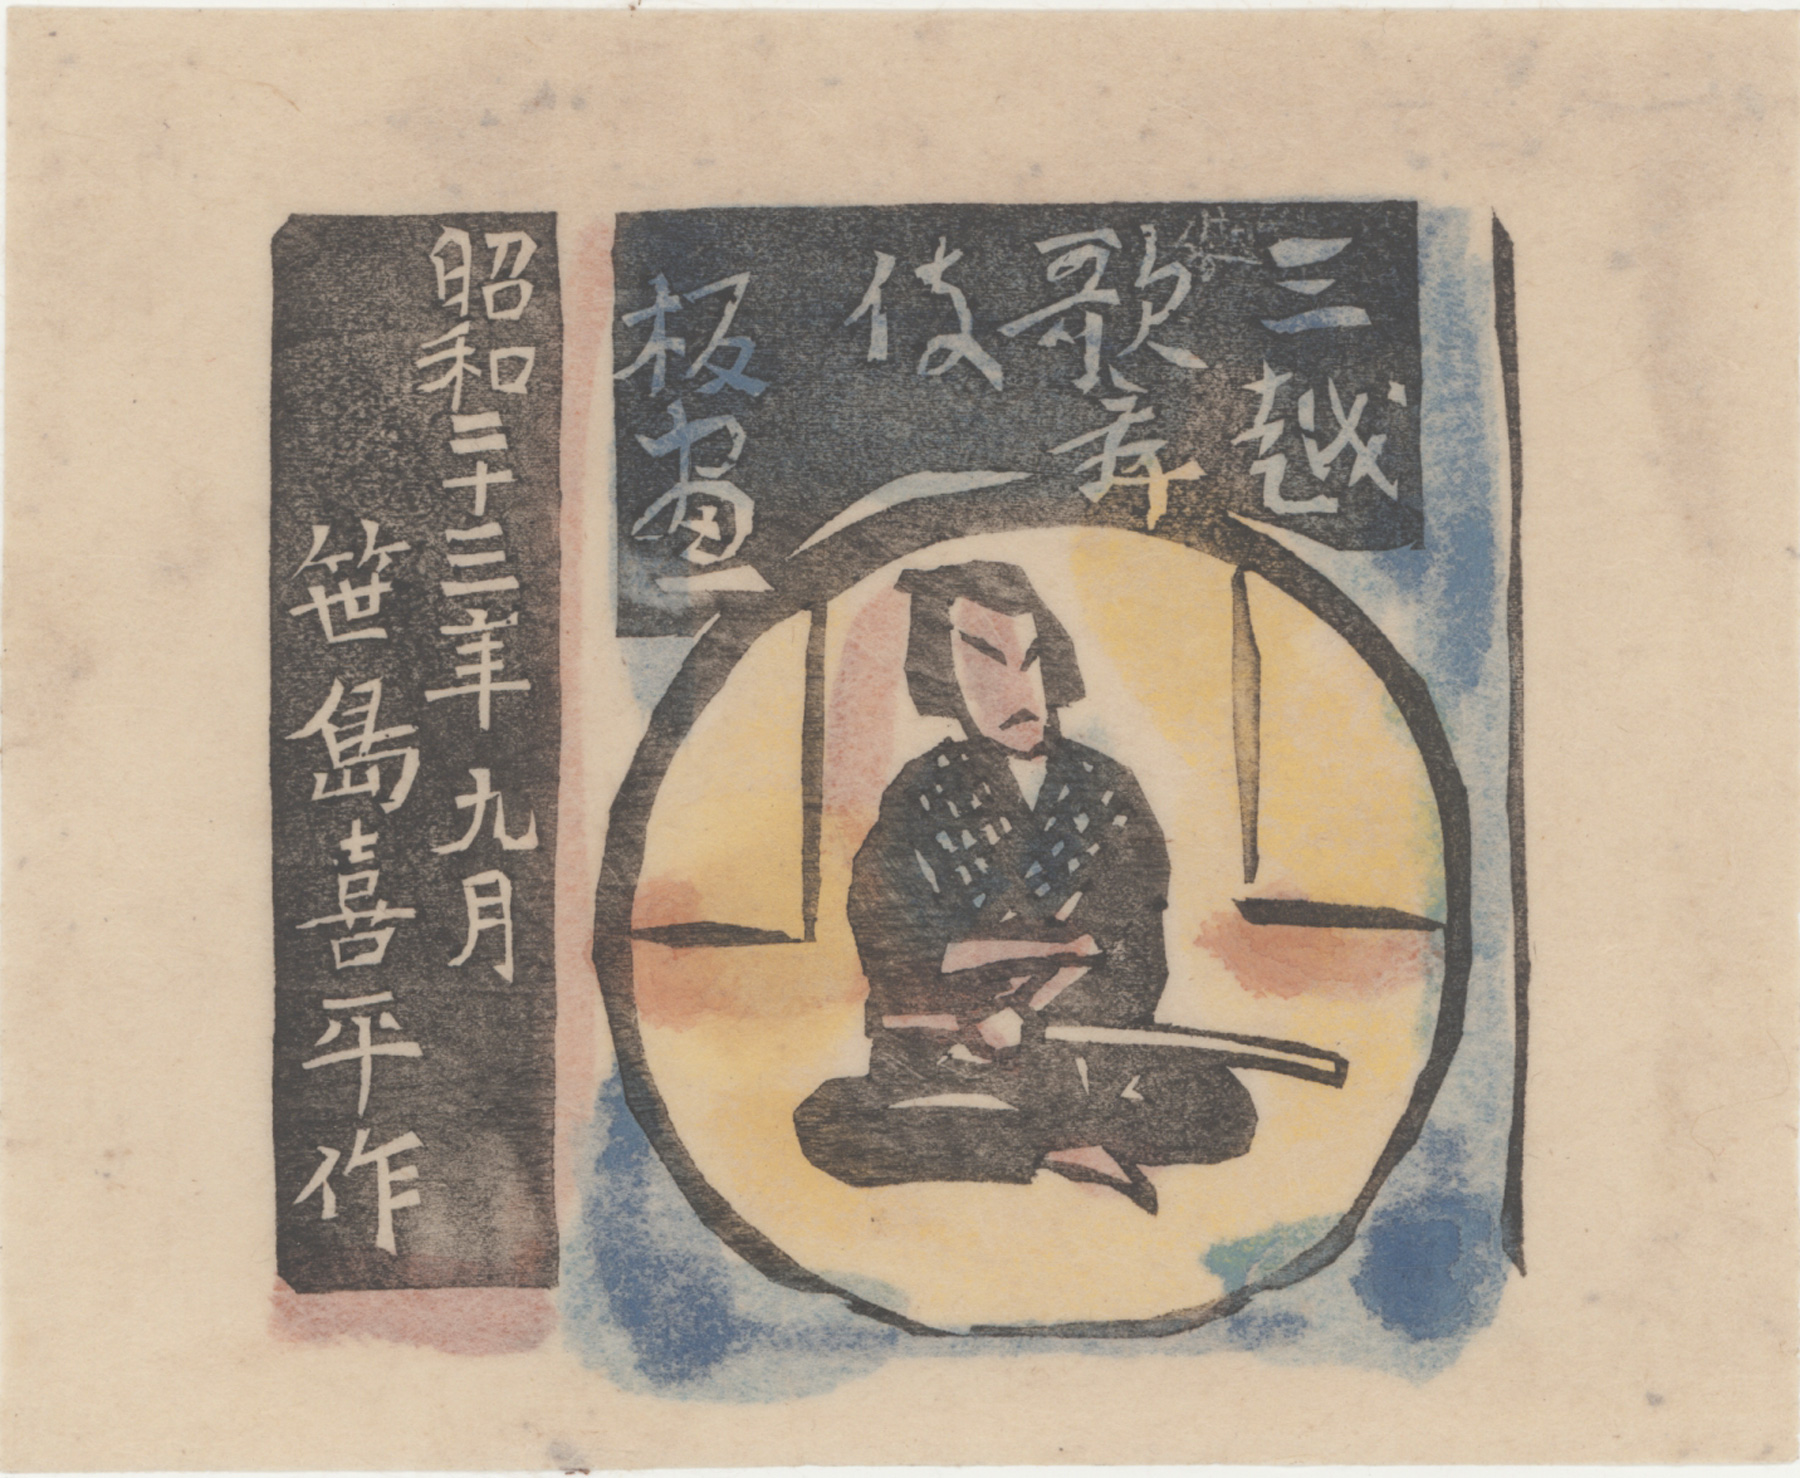 三越
歌舞
伎
板画
昭和二十三年九月
笹島喜平作